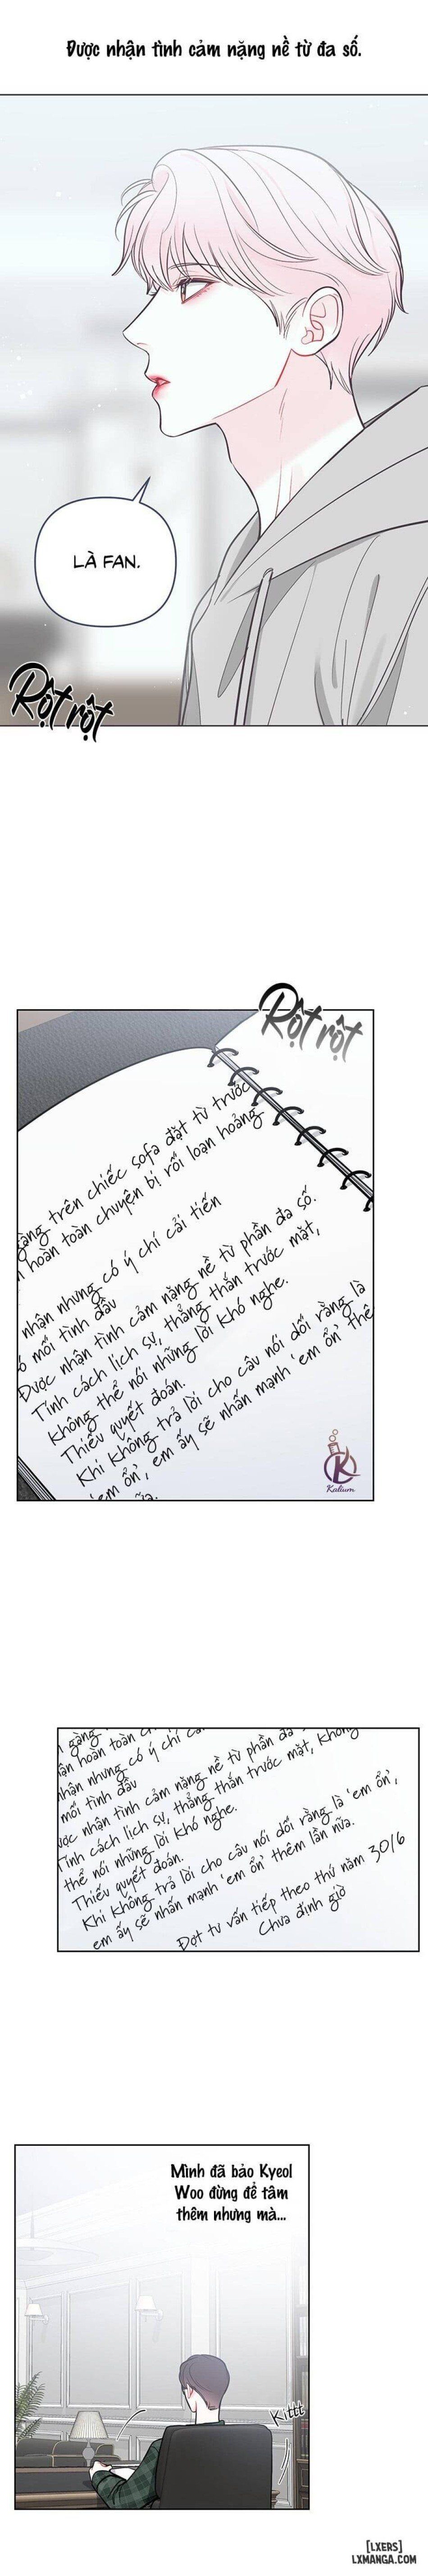 Được nhận tình cảm nặng nề từ đa số.
LÀ FAN.
Rột rột
Rột rột
gàng trên chiếc sofa đặt từ trước
hoàn toàn chuyện bị rối loạn hoảng
nhận nhưng có ý chí cải tiến
mối tình đầu
Được nhận tình cảm nặng nề từ phần đa số.
Tính cách lịch sự, thẳng thắn trước mặt,
không thể nói những lời khó nghe.
Thiếu quyết đoán.
Khi không trả lời cho câu nói dối rằng là
'em ổn', em ấy sẽ nhấn mạnh 'em ổn' thê
nữa.
Kalium
gàng
hoàn toàn
nhận nhưng có ý chí cả
mối tình đầu
ược nhận tình cảm nặng nề từ phần đa
Tính cách lịch sự, thẳng thắn trước mặt, không
thể nói những lời khó nghe.
Thiếu quyết đoán.
Khi không trả lời cho câu nói dối rằng là 'em ổn',
em ấy sẽ nhấn mạnh 'em ổn' thêm lần nữa.
Đợt tư vấn tiếp theo thứ năm 30/6
Chưa định giờ
Mình đã bảo Kyeol
Woo đừng để tâm
thêm nhưng mà...
Kittt
[LXERS]
LXMANGA.COM